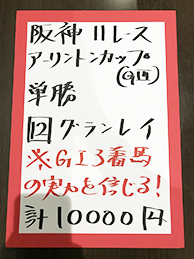 阪神11レース
アーリントンカップ
(GⅢ)
単勝
12 グランレイ
※GI3着馬
の実力を信じる!
計10000円